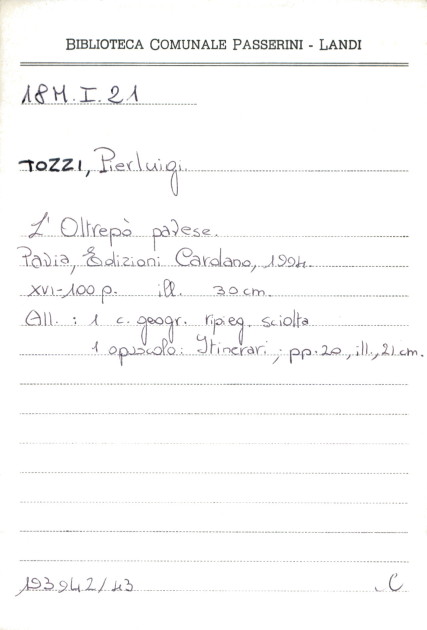 BIBLIOTECA COMUNALE PASSERINI - LANDI
18M.I.21
TOZZI, Pierluigi.
L' Oltrepò pavese.
Pavia, Edizioni Cardano, 1994.
XVI-100 p. ill. 30 cm.
All. : 1 c. geogr. ripieg. sciolta
1 opuscolo: Itinerari ; pp. 20, ill., 21 cm.
193942/43
C